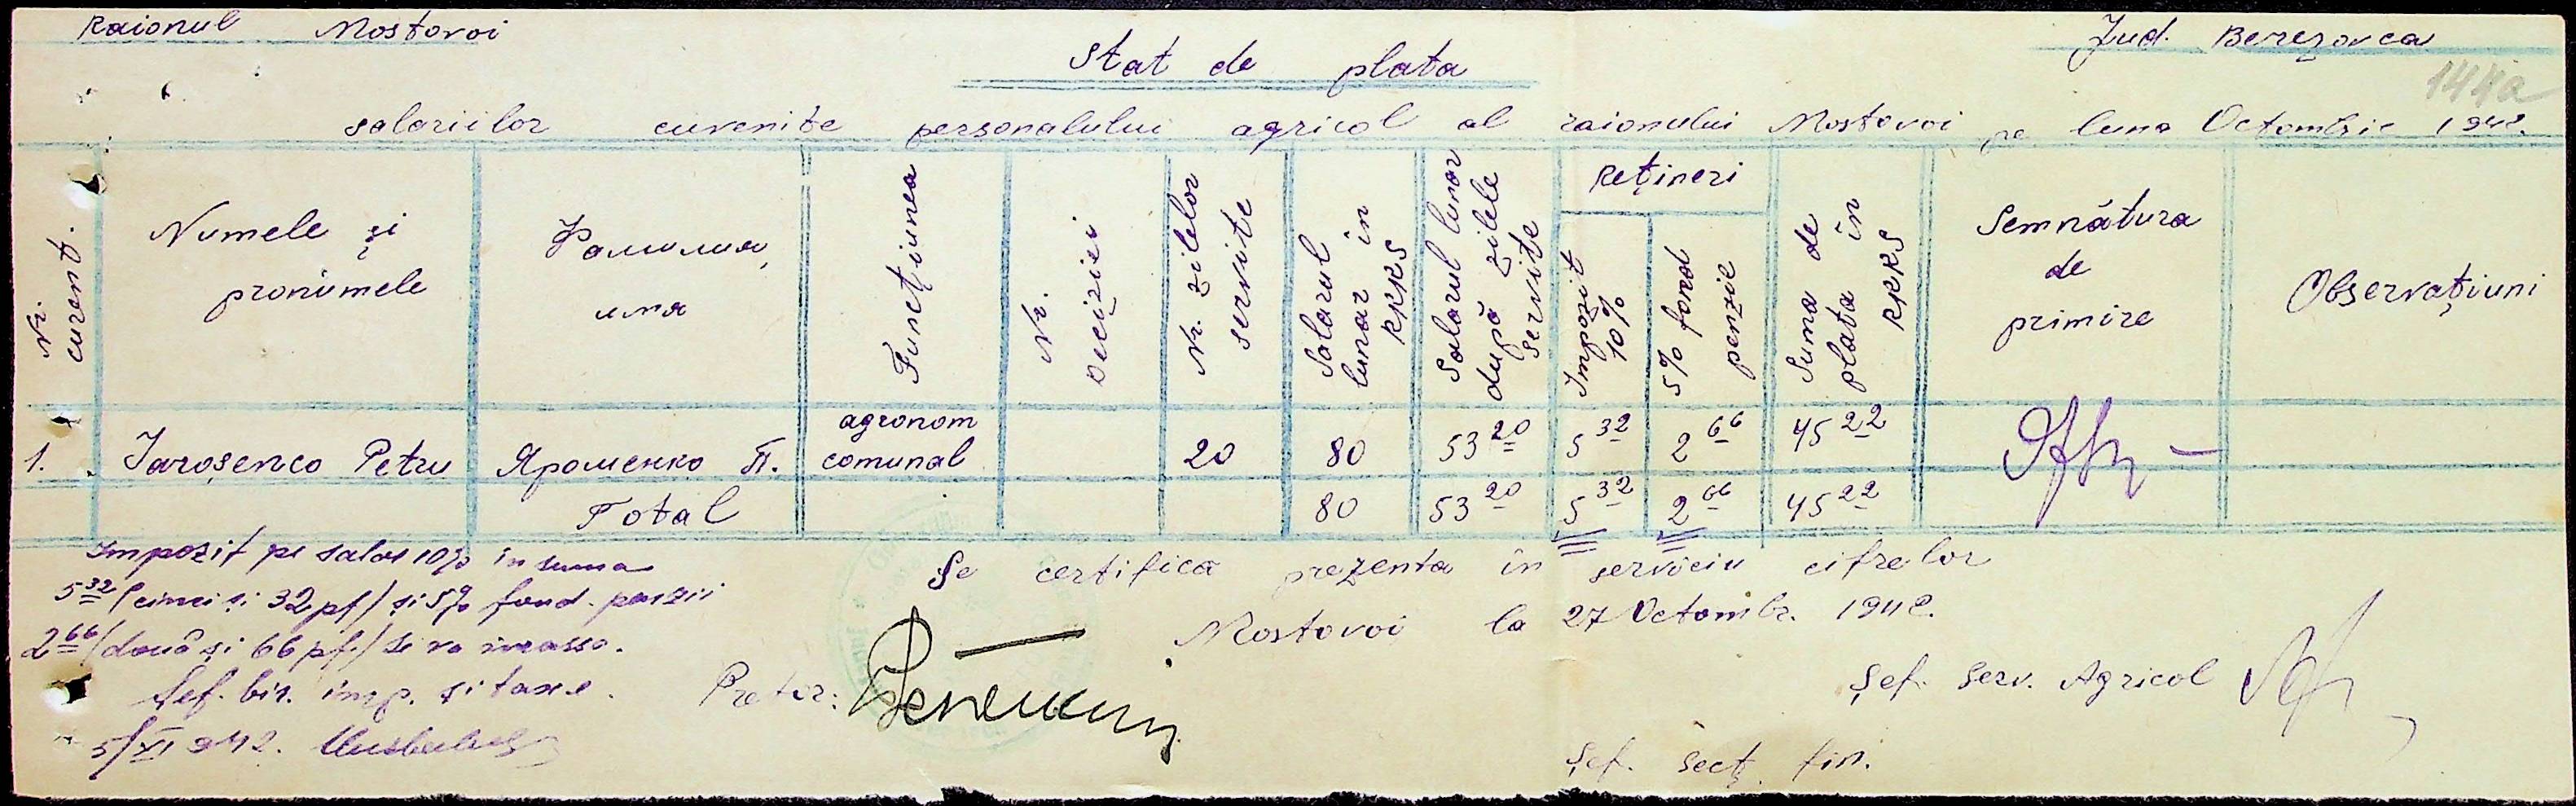 Raionul Mostovoi
Jud. Berezovca
144a
Stat de plata
salariilor cuvenite personalului agricol al raionului Mostovoi pe luna Octombrie 1942.
Nr. curent.
Numele și pronumele
Фамилия, имя
Funcțiunea
Nr. Deciziei
Nr. zilelor servite
Salarul lunar în RKKS
Salarul lunar după zilele servite
Rețineri
Impozit 10%
5% fond penzie
Suma de plata în RKKS
Semnătura de primire
Observațiuni
1. Iaroșenco Petru Ярошенко П. agronom comunal 20 80 53 20 5 32 2 66 45 22
Total 80 53 20 5 32 2 66 45 22
Impozit pe salar 10% în suma
5 32 (cinci și 32 pf) și 5% fond. penzii
2 66 (două și 66 pf) se va incassa.
Șef. bir. imp. și taxe.
5/XI 942.
Se certifica prezenta în serviciu cifrelor
Mostovoi la 27 Octombr. 1942.
Pretor:
Șef. Serv. Agricol
Șef. Secț. fin.